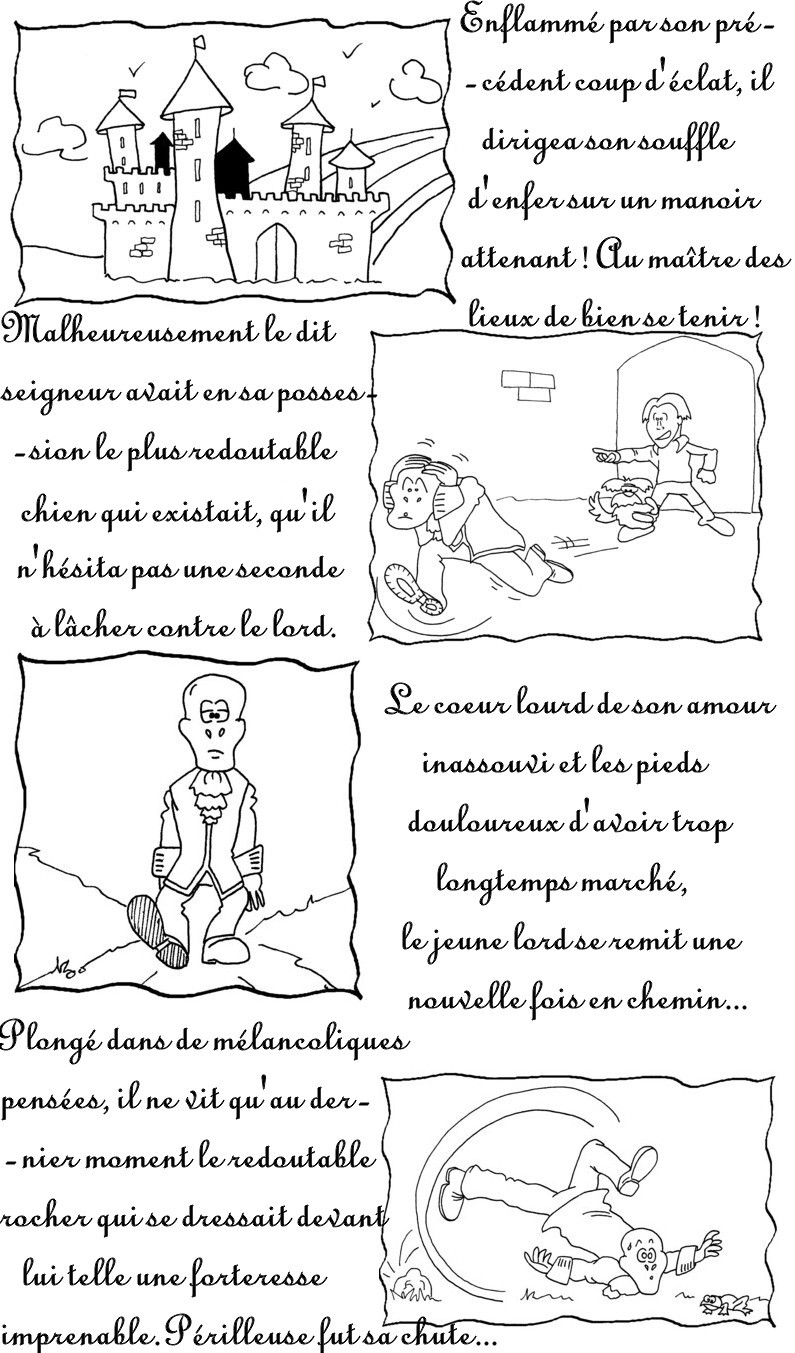 Enflammé par son pré-
-cédent coup d'éclat, il
dirigea son souffle
d'enfer sur un manoir
attenant ! Au maître des
lieux de bien se tenir !
Malheureusement le dit
seigneur avait en sa posses-
-sion le plus redoutable
chien qui existait, qu'il
n'hésita pas une seconde
à lâcher contre le lord.
Le coeur lourd de son amour
inassouvi et les pieds
douloureux d'avoir trop
longtemps marché,
le jeune lord se remit une
nouvelle fois en chemin...
Plongé dans de mélancoliques
pensées, il ne vit qu'au der-
-nier moment le redoutable
rocher qui se dressait devant
lui telle une forteresse
imprenable. Périlleuse fut sa chute...